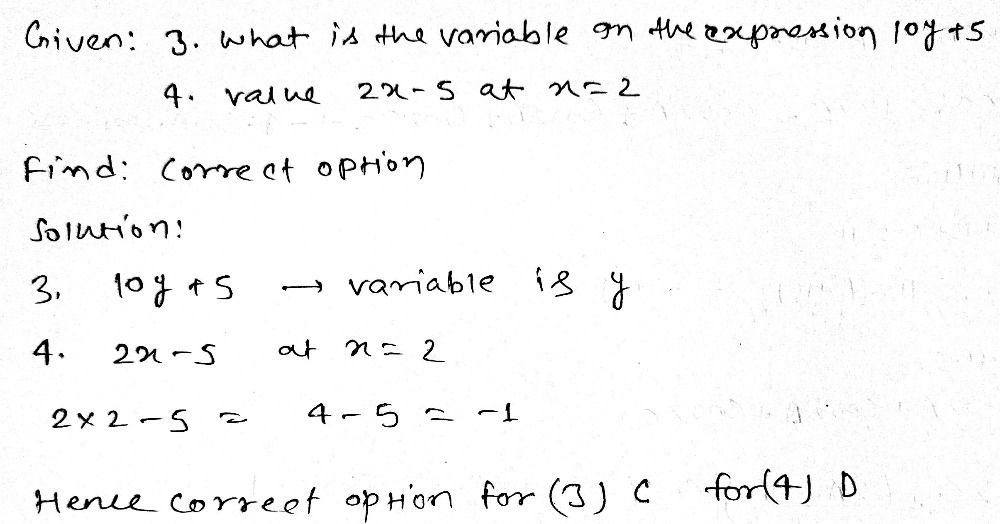 Given: 3. what is the variable on the expression 10y+5
4. value 2x-5 at x=2
Find: Correct option
Solution:
3. 10y+5 → variable is y
4. 2x-5 at x=2
2×2-5 = 4-5 = -1
Hence correct option for (3) C for(4) D